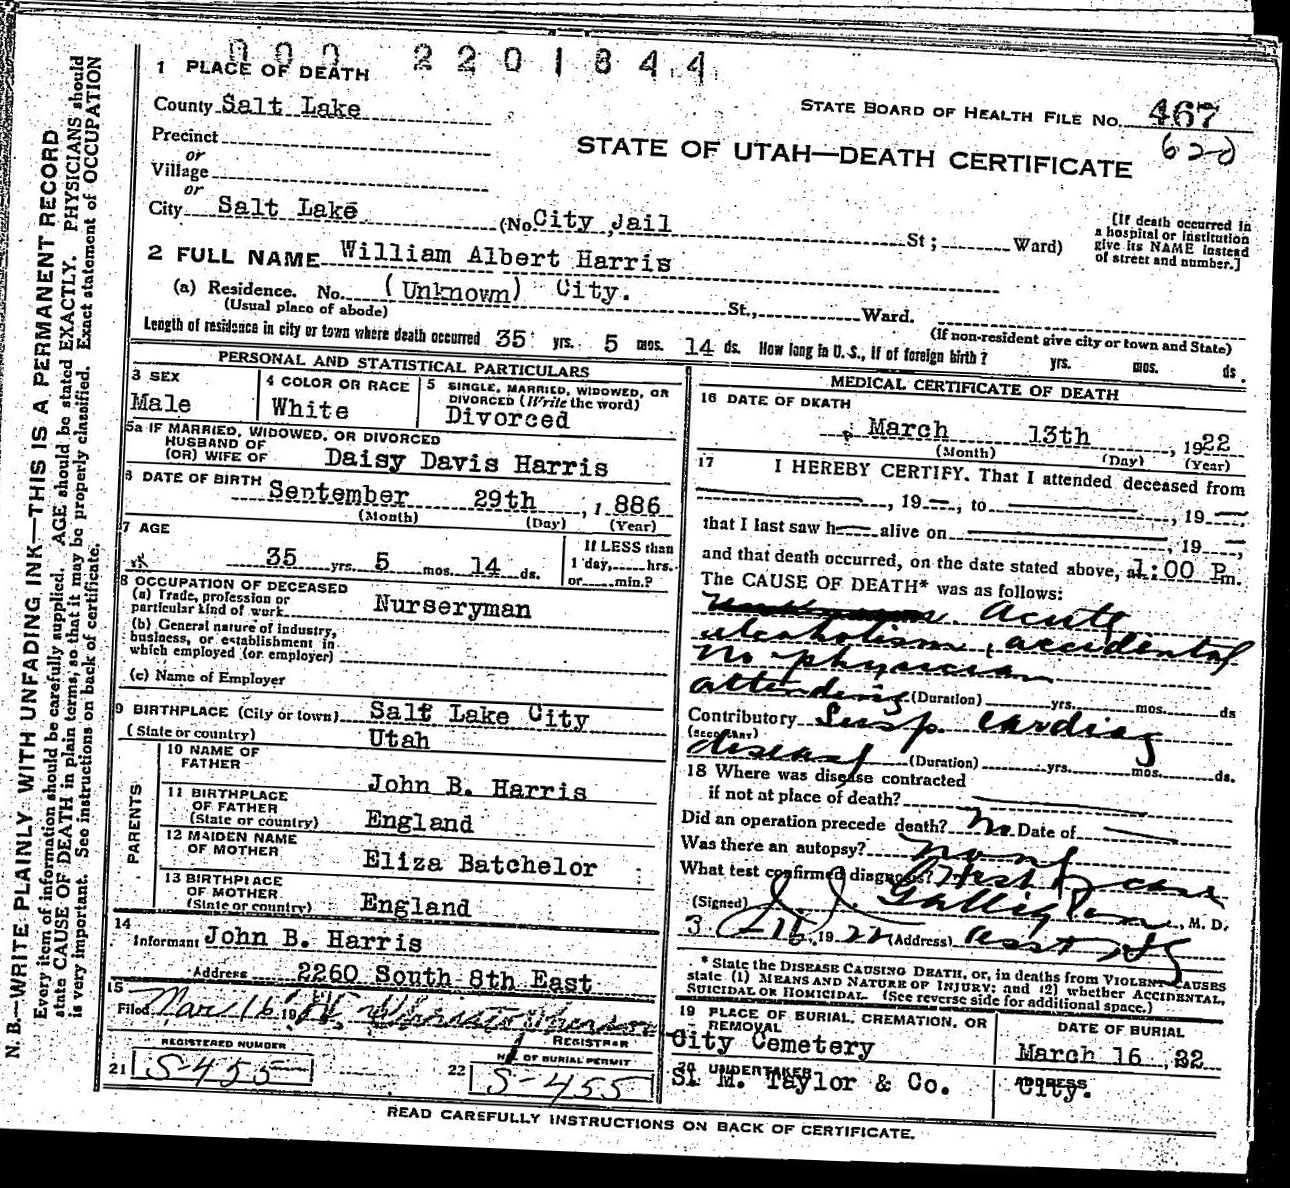 000 2201844
1 PLACE OF DEATH
STATE BOARD OF HEALTH FILE No. 467
County Salt Lake
620
STATE OF UTAH—DEATH CERTIFICATE
Precinct
or
Village
or
City Salt Lake (No City Jail St; Ward)
[If death occurred in
a hospital or institution
give its NAME instead
of street and number.]
2 FULL NAME William Albert Harris
(a) Residence. No. (Unknown) City. St., Ward.
(Usual place of abode)
(If non-resident give city or town and State)
Length of residence in city or town where death occurred 35 yrs. 5 mos. 14 ds. How long in U. S., if of foreign birth? yrs. mos. ds.
PERSONAL AND STATISTICAL PARTICULARS
3 SEX
Male
4 COLOR OR RACE
White
5 SINGLE, MARRIED, WIDOWED, OR
DIVORCED (Write the word)
Divorced
5a IF MARRIED, WIDOWED, OR DIVORCED
HUSBAND OF
(OR) WIFE OF Daisy Davis Harris
6 DATE OF BIRTH
September 29th, 1886
(Month) (Day) (Year)
7 AGE
35 yrs. 5 mos. 14 ds.
If LESS than
1 day, hrs.
or min.?
8 OCCUPATION OF DECEASED
(a) Trade, profession or
particular kind of work Nurseryman
(b) General nature of industry,
business, or establishment in
which employed (or employer)
(c) Name of Employer
9 BIRTHPLACE (City or town) Salt Lake City
(State or country) Utah
PARENTS
10 NAME OF
FATHER John B. Harris
11 BIRTHPLACE
OF FATHER
(State or country) England
12 MAIDEN NAME
OF MOTHER Eliza Batchelor
13 BIRTHPLACE
OF MOTHER
(State or country) England
14
Informant John B. Harris
Address 2260 South 8th East
15
Filed Mar 16 19
REGISTRAR
REGISTERED NUMBER
21 S-455
No. OF BURIAL PERMIT
22 S-455
MEDICAL CERTIFICATE OF DEATH
16 DATE OF DEATH
March 13th, 1922
(Month) (Day) (Year)
17 I HEREBY CERTIFY, That I attended deceased from
, 19 , to , 19
that I last saw h alive on , 19
and that death occurred, on the date stated above, at 1:00 P.m.
The CAUSE OF DEATH* was as follows:
Acute
alcoholism, accidental
No physician
attending (Duration) yrs. mos. ds
Contributory Susp. cardiac
(SECONDARY)
disease (Duration) yrs. mos. ds.
18 Where was disease contracted
if not at place of death?
Did an operation precede death? No Date of
Was there an autopsy? none
What test confirmed diagnosis? Hist of case
(Signed) , M. D.
3 , 1922 (Address)
* State the DISEASE CAUSING DEATH, or, in deaths from VIOLENT CAUSES
state (1) MEANS AND NATURE OF INJURY; and (2) whether ACCIDENTAL,
SUICIDAL OR HOMICIDAL. (See reverse side for additional space.)
19 PLACE OF BURIAL, CREMATION, OR
REMOVAL
City Cemetery
DATE OF BURIAL
March 16, 22
20 UNDERTAKER
S. M. Taylor & Co.
ADDRESS
City.
READ CAREFULLY INSTRUCTIONS ON BACK OF CERTIFICATE.
N. B.—WRITE PLAINLY WITH UNFADING INK—THIS IS A PERMANENT RECORD
Every item of information should be carefully supplied. AGE should be stated EXACTLY. PHYSICIANS should
state CAUSE OF DEATH in plain terms, so that it may be properly classified. Exact statement of OCCUPATION
is very important. See instructions on back of certificate.